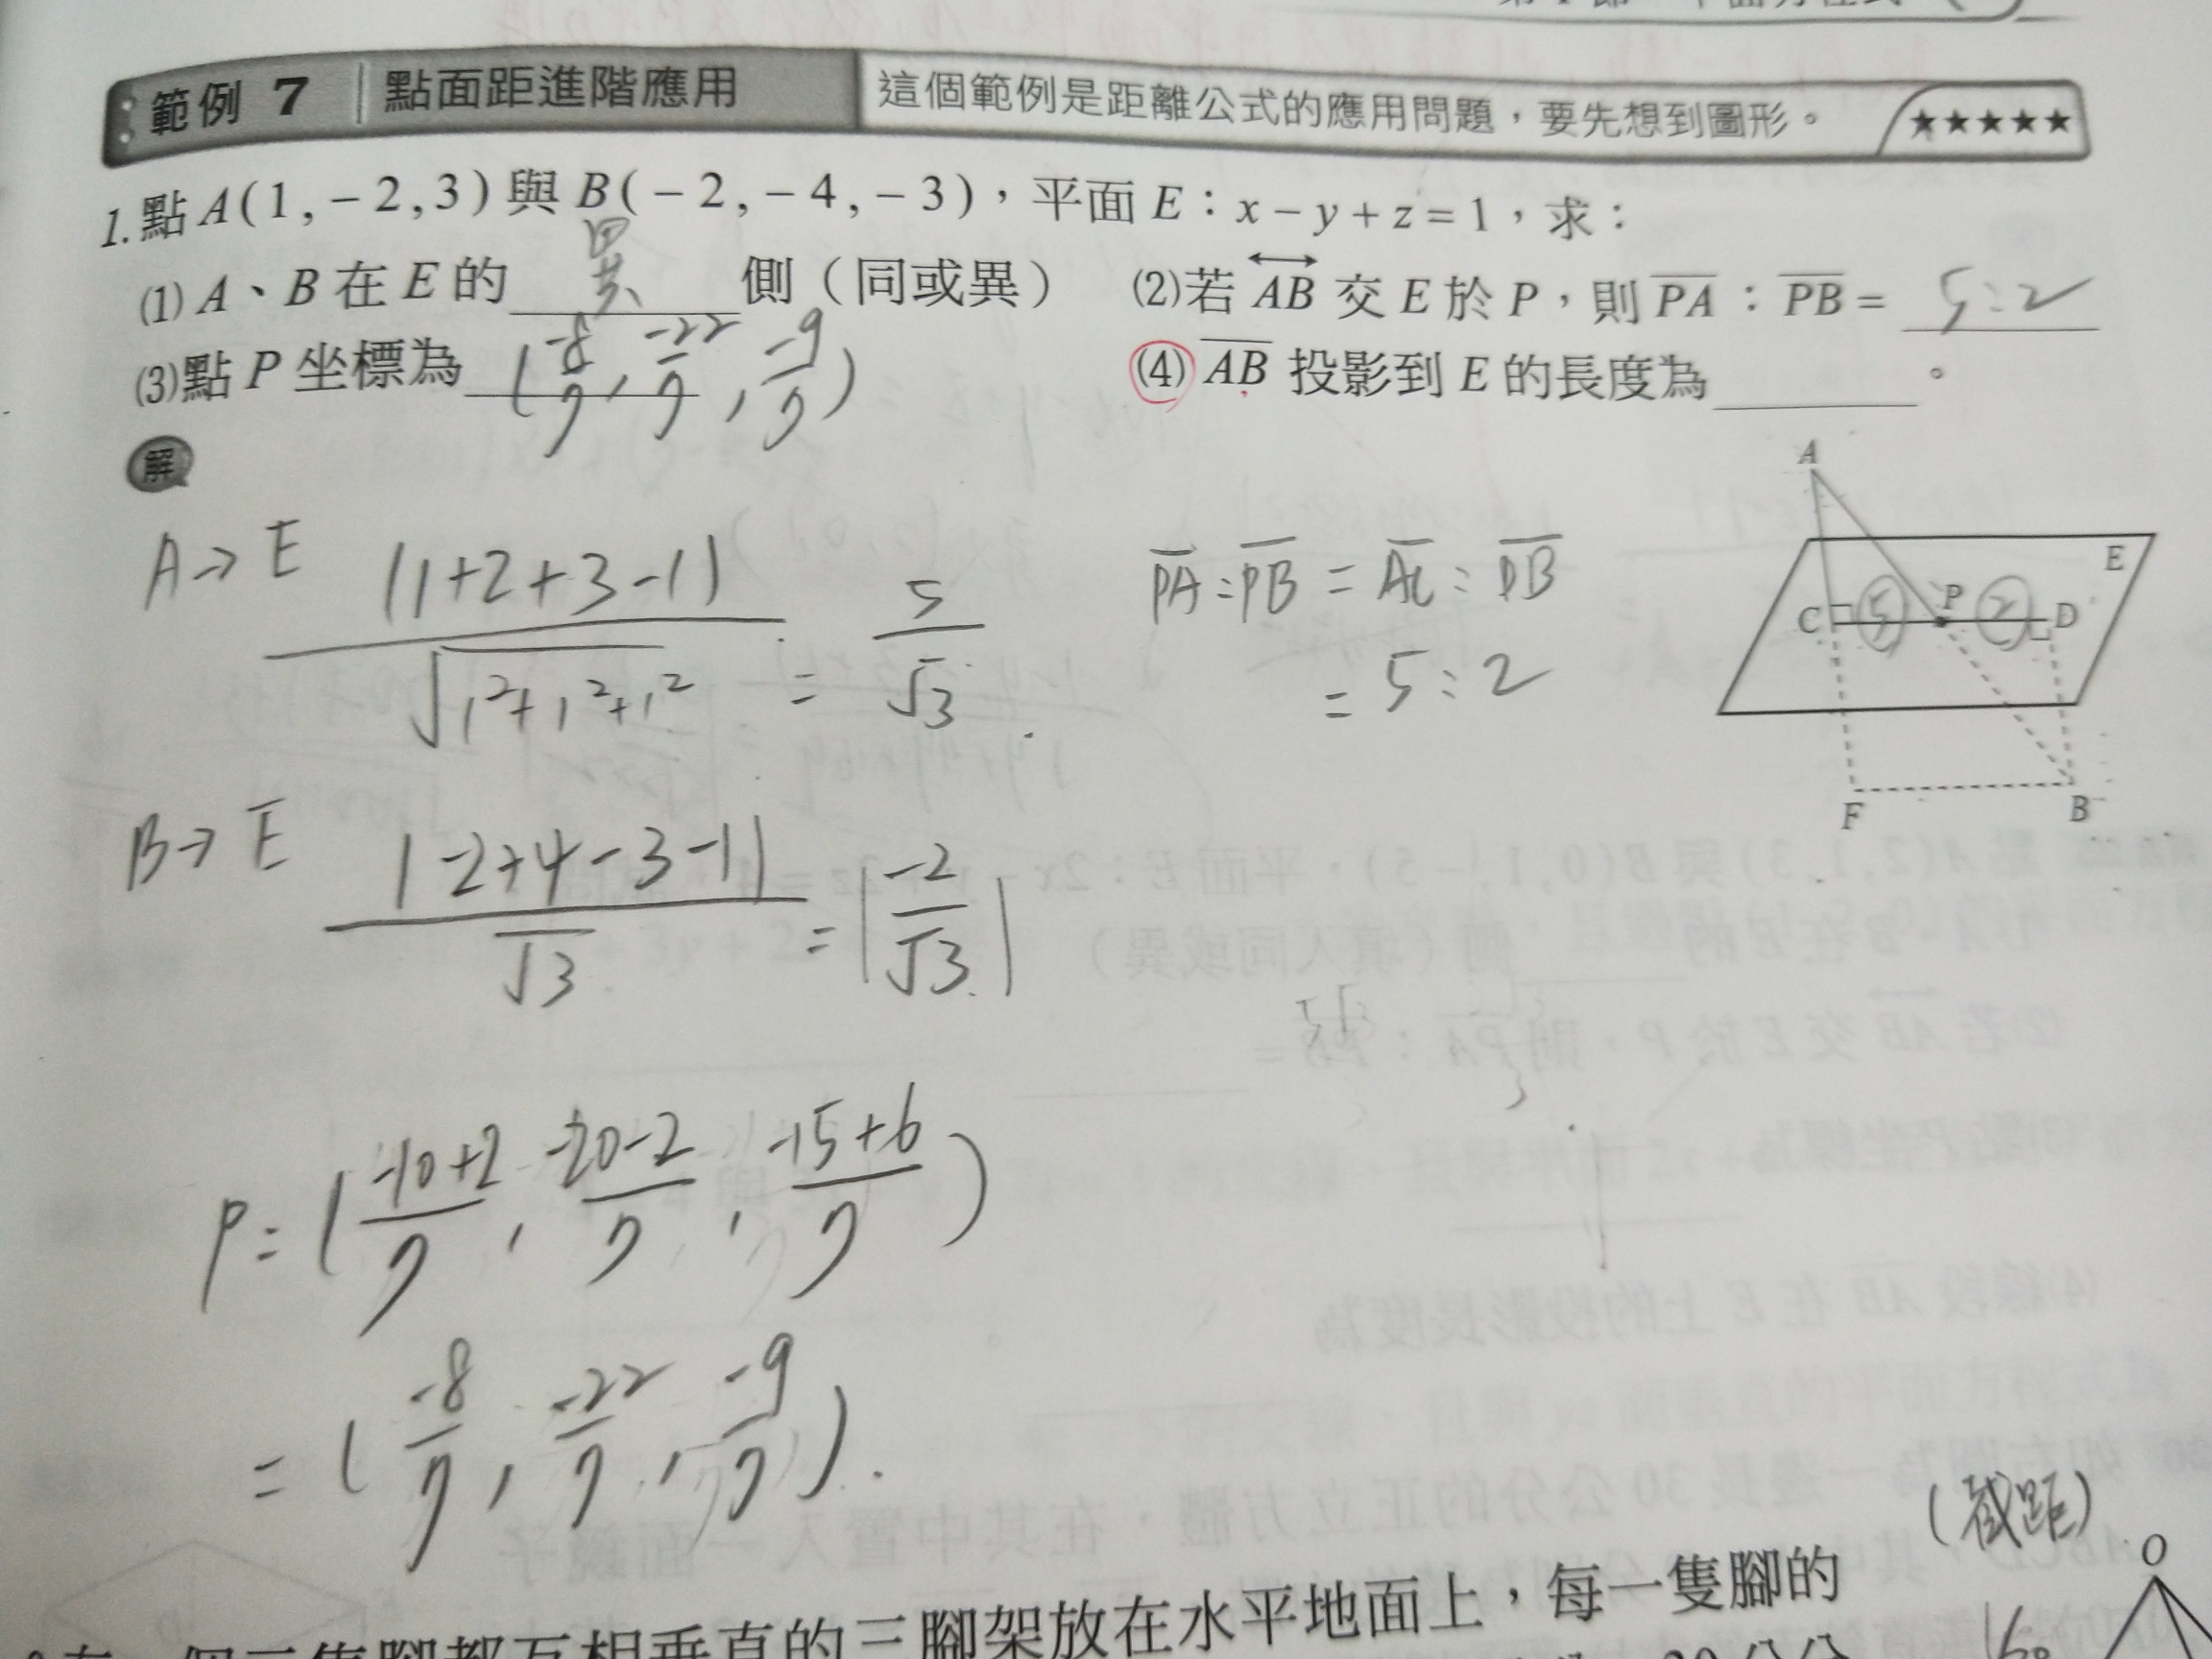 範例 7 點面距進階應用 這個範例是距離公式的應用問題，要先想到圖形。 ★★★★★
1. 點 A(1,－2,3) 與 B(－2,－4,－3)，平面 E：x－y＋z＝1，求：
(1) A、B 在 E 的 異 側（同或異） (2)若 AB 交 E 於 P，則 PA：PB＝ 5:2
(3)點 P 坐標為 (-8/7, -22/7, -9/7) (4) AB 投影到 E 的長度為 。
解
A→E |1+2+3-1| / √1²+1²+1² = 5/√3
PA:PB = AC:DB
= 5:2
A
E
C 5 P 2 D
F B
B→E |-2+4-3-1| / √3 = |-2/√3|
P=(-10+2/7, -20-2/7, -15+6/7)
=(-8/7, -22/7, -9/7).
(截距)
O
個三隻腳都互相垂直的三腳架放在水平地面上，每一隻腳的